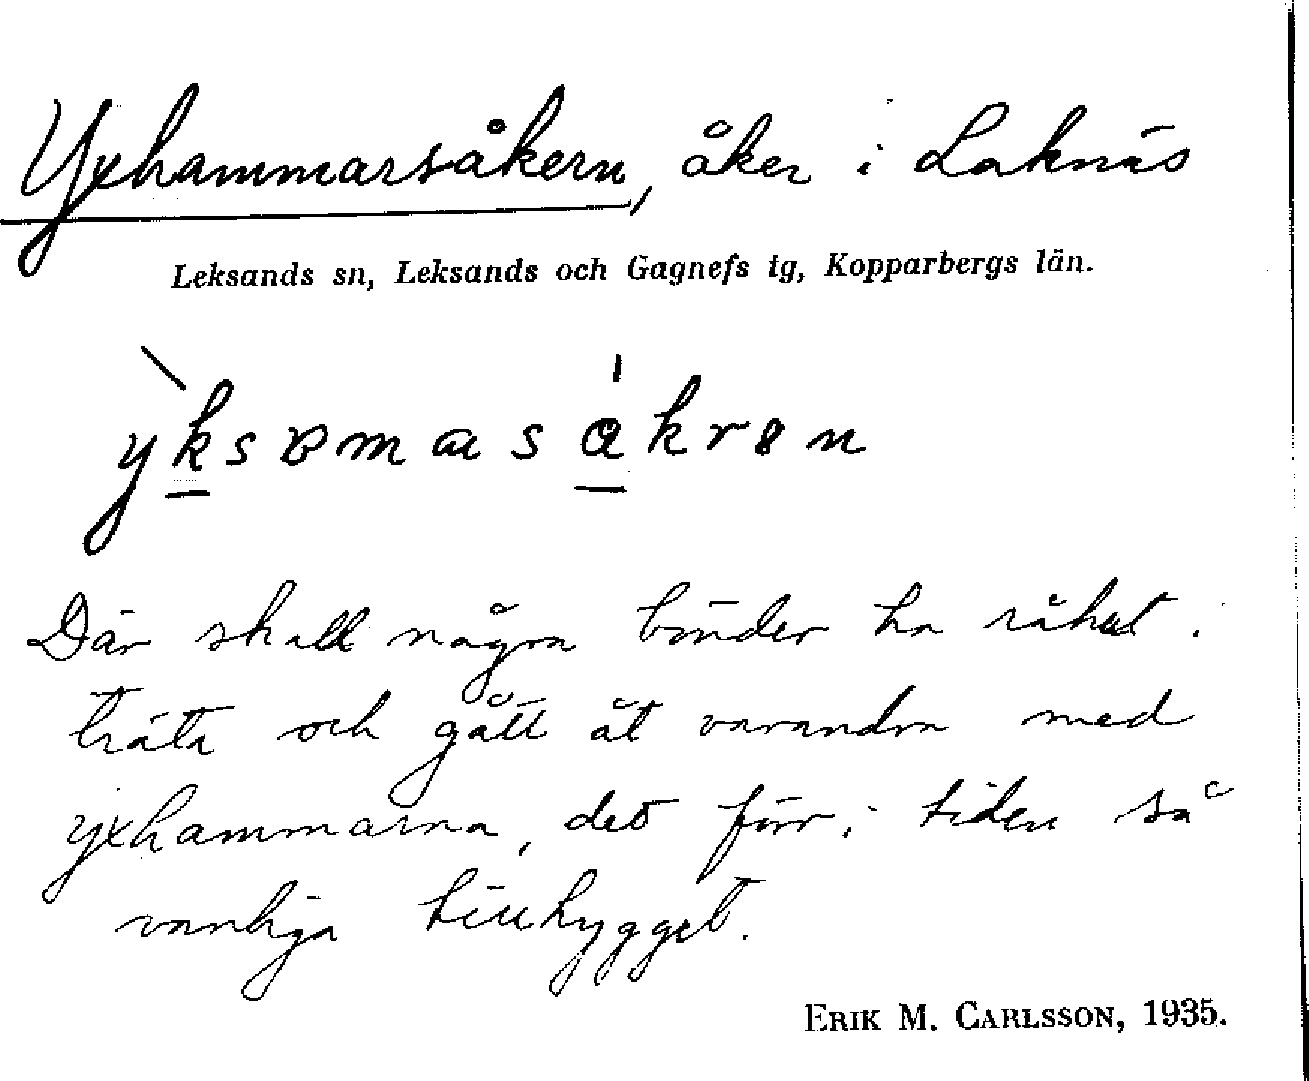 Yxhammarsåkern, åker i Laknäs
Leksands sn, Leksands och Gagnefs tg, Kopparbergs län.
yksɒmasåkrən
Där skall några bönder ha råkat i
träta och gått åt varandra med
yxhammarna, det förr i tiden så
vanliga tillhygget.
ERIK M. CARLSSON, 1935.